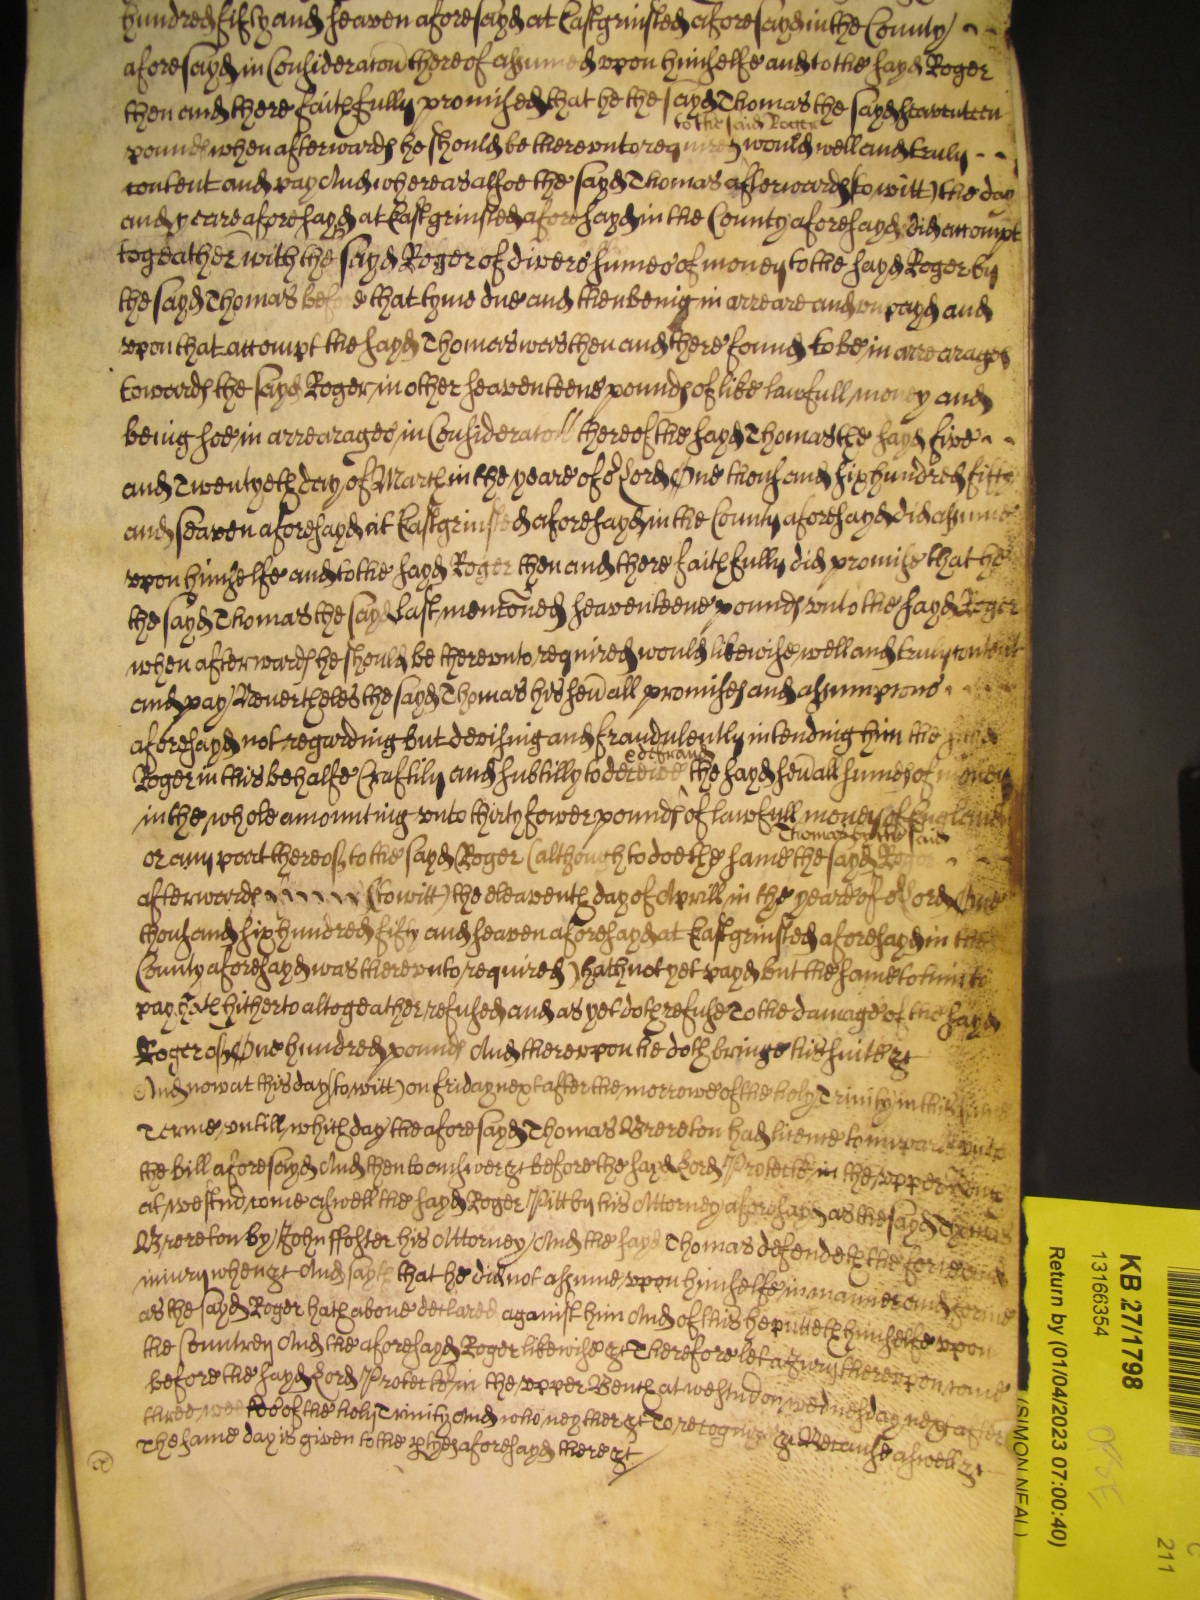 hundred fifty and seaven aforesayd at Eastgrinsted aforesayd in the County
aforesayd in Consideracon thereof assumed upon himselfe and to the sayd Roger
then and there faithfully promised that he the sayd Thomas the sayd seaventeen
to the said Roger
pounds when afterwards he should be thereunto required would well and truly
content and pay And whereas alsoe the sayd Thomas afterwards (to witt) the day
and yeare aforesayd at Eastgrinsted aforesayd in the County aforesayd did accompt
togeather with the sayd Roger of divers sumes of money to the sayd Roger by
the sayd Thomas before that tyme due and then being in arreare and unpayd and
upon that accompt the sayd Thomas was then and there found to be in arrearages
towards the sayd Roger in other seaventeene pounds of like lawfull money and
being soe in arrearages in Consideracon thereof the sayd Thomas the sayd five
and Twentyeth day of March in the yeare of or Lord One thousand six hundred fifty
and seaven aforesayd at Eastgrinsted aforesayd in the County aforesayd did assume
upon himselfe and to the sayd Roger then and there faithfully did promise that he
the sayd Thomas the sayd last menconed seaventeene pounds unto the sayd Roger
when afterwards he should be thereunto required would likewise well and truly content
and pay Neverthelesse the sayd Thomas his sevall promises and assumpcons
aforesayd not regarding but devising and fraudulently intending him the sayd
Roger in this behalfe Craftily and subtilly to deceive
et defraud
the sayd sevall sumes of money
in the whole amounting unto thirty fower pounds of lawfull money of England
Thomas by the said
or any part thereof to the sayd Roger (although to doe the same the sayd Roger
afterwards (to witt) the eleaventh day of Aprill in the yeare of or Lord One
thousand six hundred fifty and seaven aforesayd at Eastgrinsted aforesayd in the
County aforesayd was thereunto required) hath not yet payd but the same to him to
pay hath hitherto altogeather refused and as yet doth refuse To the damage of the sayd
Roger of One hundred pounds And thereupon he doth bringe his suite &c
And now at this day (to witt) on friday next after the morrowe of the holy Trinity in this same
Terme untill which day the aforesayd Thomas Brereton had licence to imparle unto
the bill aforesayd And then to answer &c before the sayd Lord Protector in the upper Bench
at westmr come aswell the sayd Roger Pitt by his Attorney aforesayd as the sayd Thomas
Brereton by John ffoster his Attorney And the sayd Thomas defendeth the force and
iniury when &c And sayth that he did not assume upon himselfe in manner and forme
as the sayd Roger hath above declared against him And of this he putteth himselfe upon
the Countrey And the aforesayd Roger likewise &c Therefore let a Jury thereupon come
before the sayd Lord Protector in the upper Bench at westmr on wednesday next after
three weekes of the holy Trinity And who neyther &c To recognize &c Because aswell &c
The same day is given to the ptyes aforesayd there &c
KB 27/1798
13166354
Return by (01/04/2023 07:00:40)
(SIMON NEAL)
211